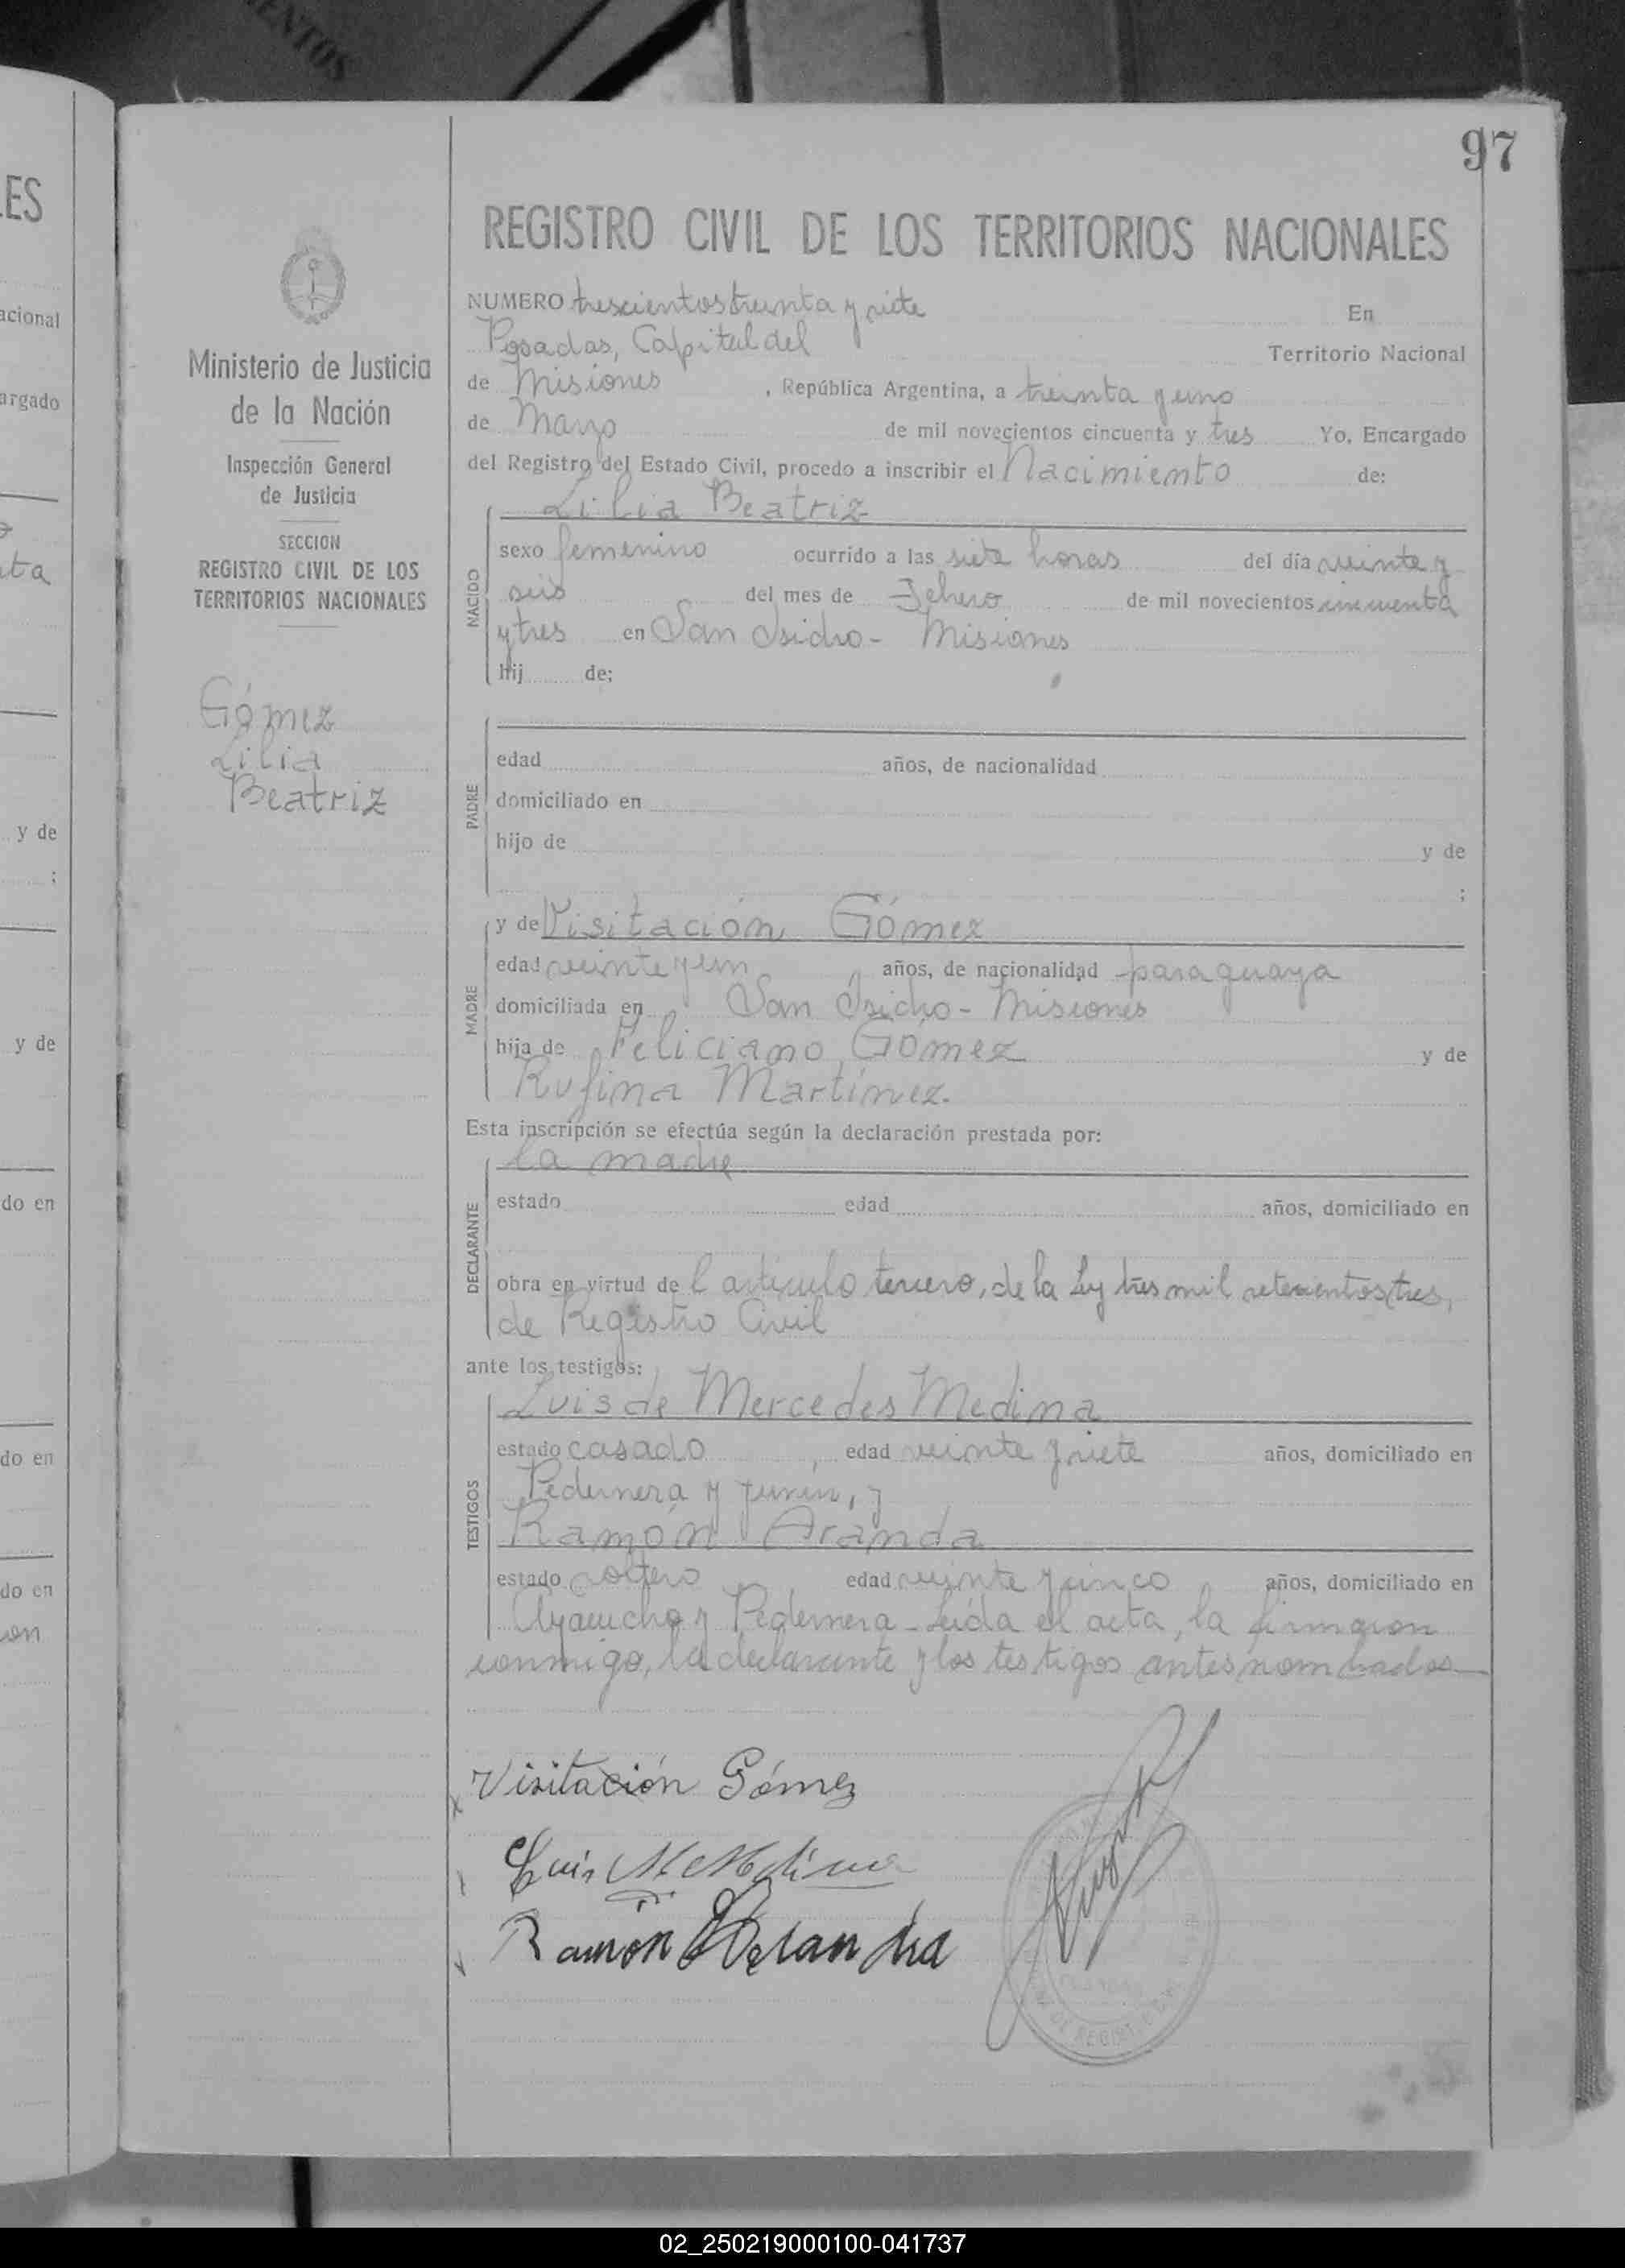 ENTOS
97
REGISTRO CIVIL DE LOS TERRITORIOS NACIONALES
NUMERO trescientos treinta y siete En
Posadas, Capital del Territorio Nacional
de Misiones, República Argentina, a treinta y uno
de Marzo de mil novecientos cincuenta y tres Yo, Encargado
del Registro del Estado Civil, procedo a inscribir el Nacimiento de:
Lilia Beatriz
NACIDO
sexo femenino ocurrido a las siete horas del día veinte y
seis del mes de Febrero de mil novecientos cincuenta
y tres en San Isidro - Misiones
hij de;
PADRE
edad años, de nacionalidad
domiciliado en
hijo de y de
;
MADRE
y de Visitación Gómez
edad veinte y un años, de nacionalidad paraguaya
domiciliada en San Isidro - Misiones
hija de Feliciano Gómez y de
Rufina Martínez.
Esta inscripción se efectúa según la declaración prestada por:
la madre
DECLARANTE
estado edad años, domiciliado en
obra en virtud de l artículo tercero, de la Ley tres mil setecientos tres,
de Registro Civil
ante los testigos:
TESTIGOS
Luis de Mercedes Medina
estado casado, edad veinte y siete años, domiciliado en
Pedernera y Junín, y
Ramón Aranda
estado soltero, edad veinte y cinco, años, domiciliado en
Ayacucho y Pedernera - Leída el acta, la firmaron
conmigo, la declarante y los testigos antes nombrados
x Visitación Gómez
Luis M Medina
Ramón Aranda
Ministerio de Justicia
de la Nación
Inspección General
de Justicia
SECCION
REGISTRO CIVIL DE LOS
TERRITORIOS NACIONALES
Gómez
Lilia
Beatriz
LES
acional
argado
ta
y de
;
y de
do en
do en
do en
on
02_250219000100-041737